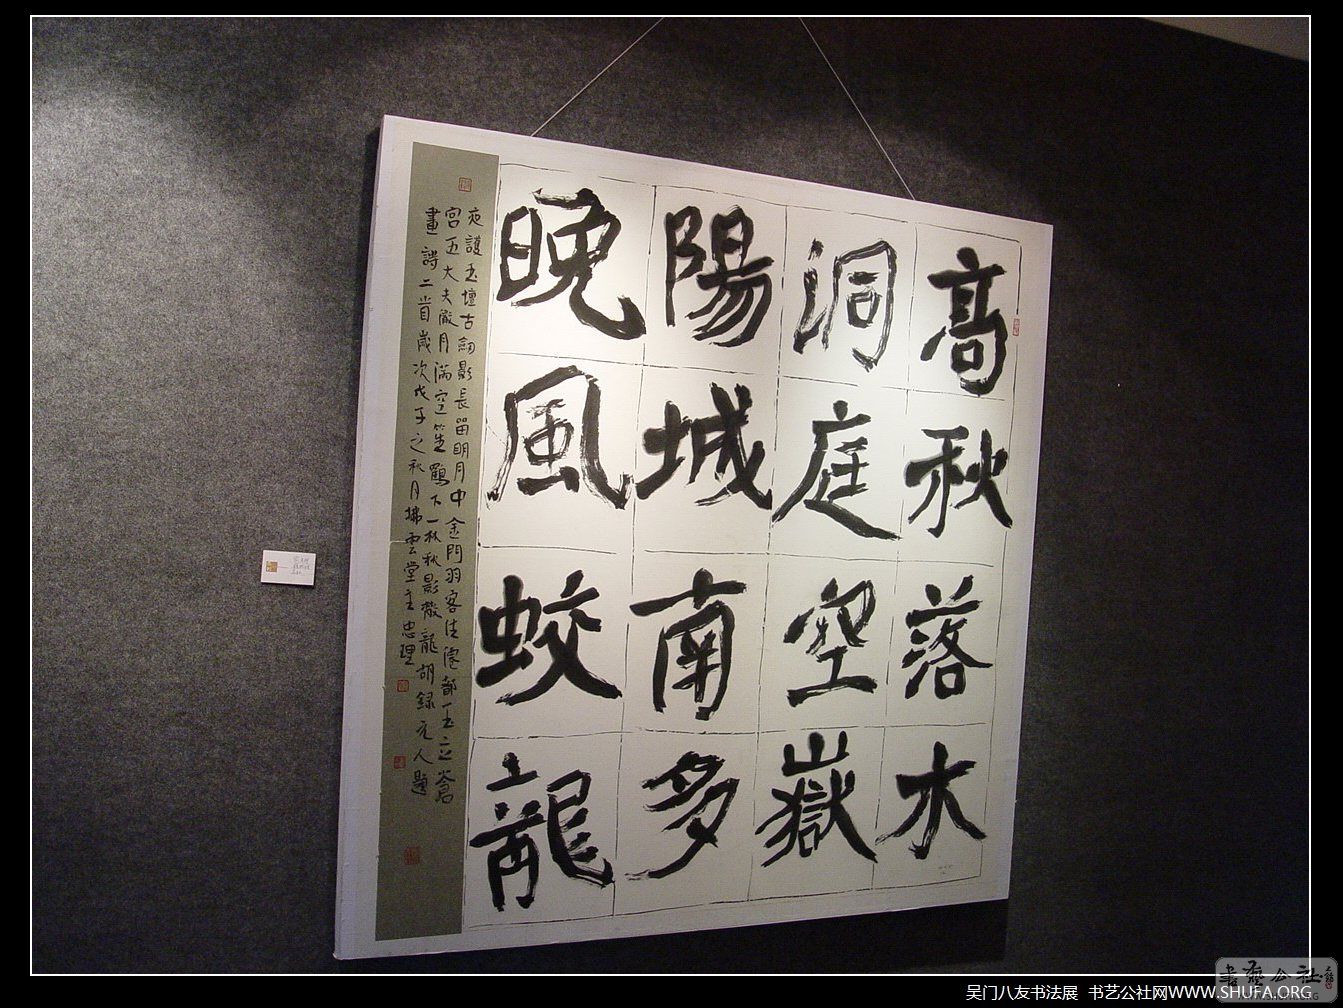 高秋落木
洞庭空嶽
陽城南多
晚風蛟龍
夜護玉壇古劍影長留明月中金門羽客住
宮五大夫嚴月滿空笙鶴下一林秋影散龍胡錄元人題
畫詩二首歲次戊子之秋月拂雲堂主忠理
吴门八友书法展 书艺公社网WWW.SHUFA.ORG
書藝公社